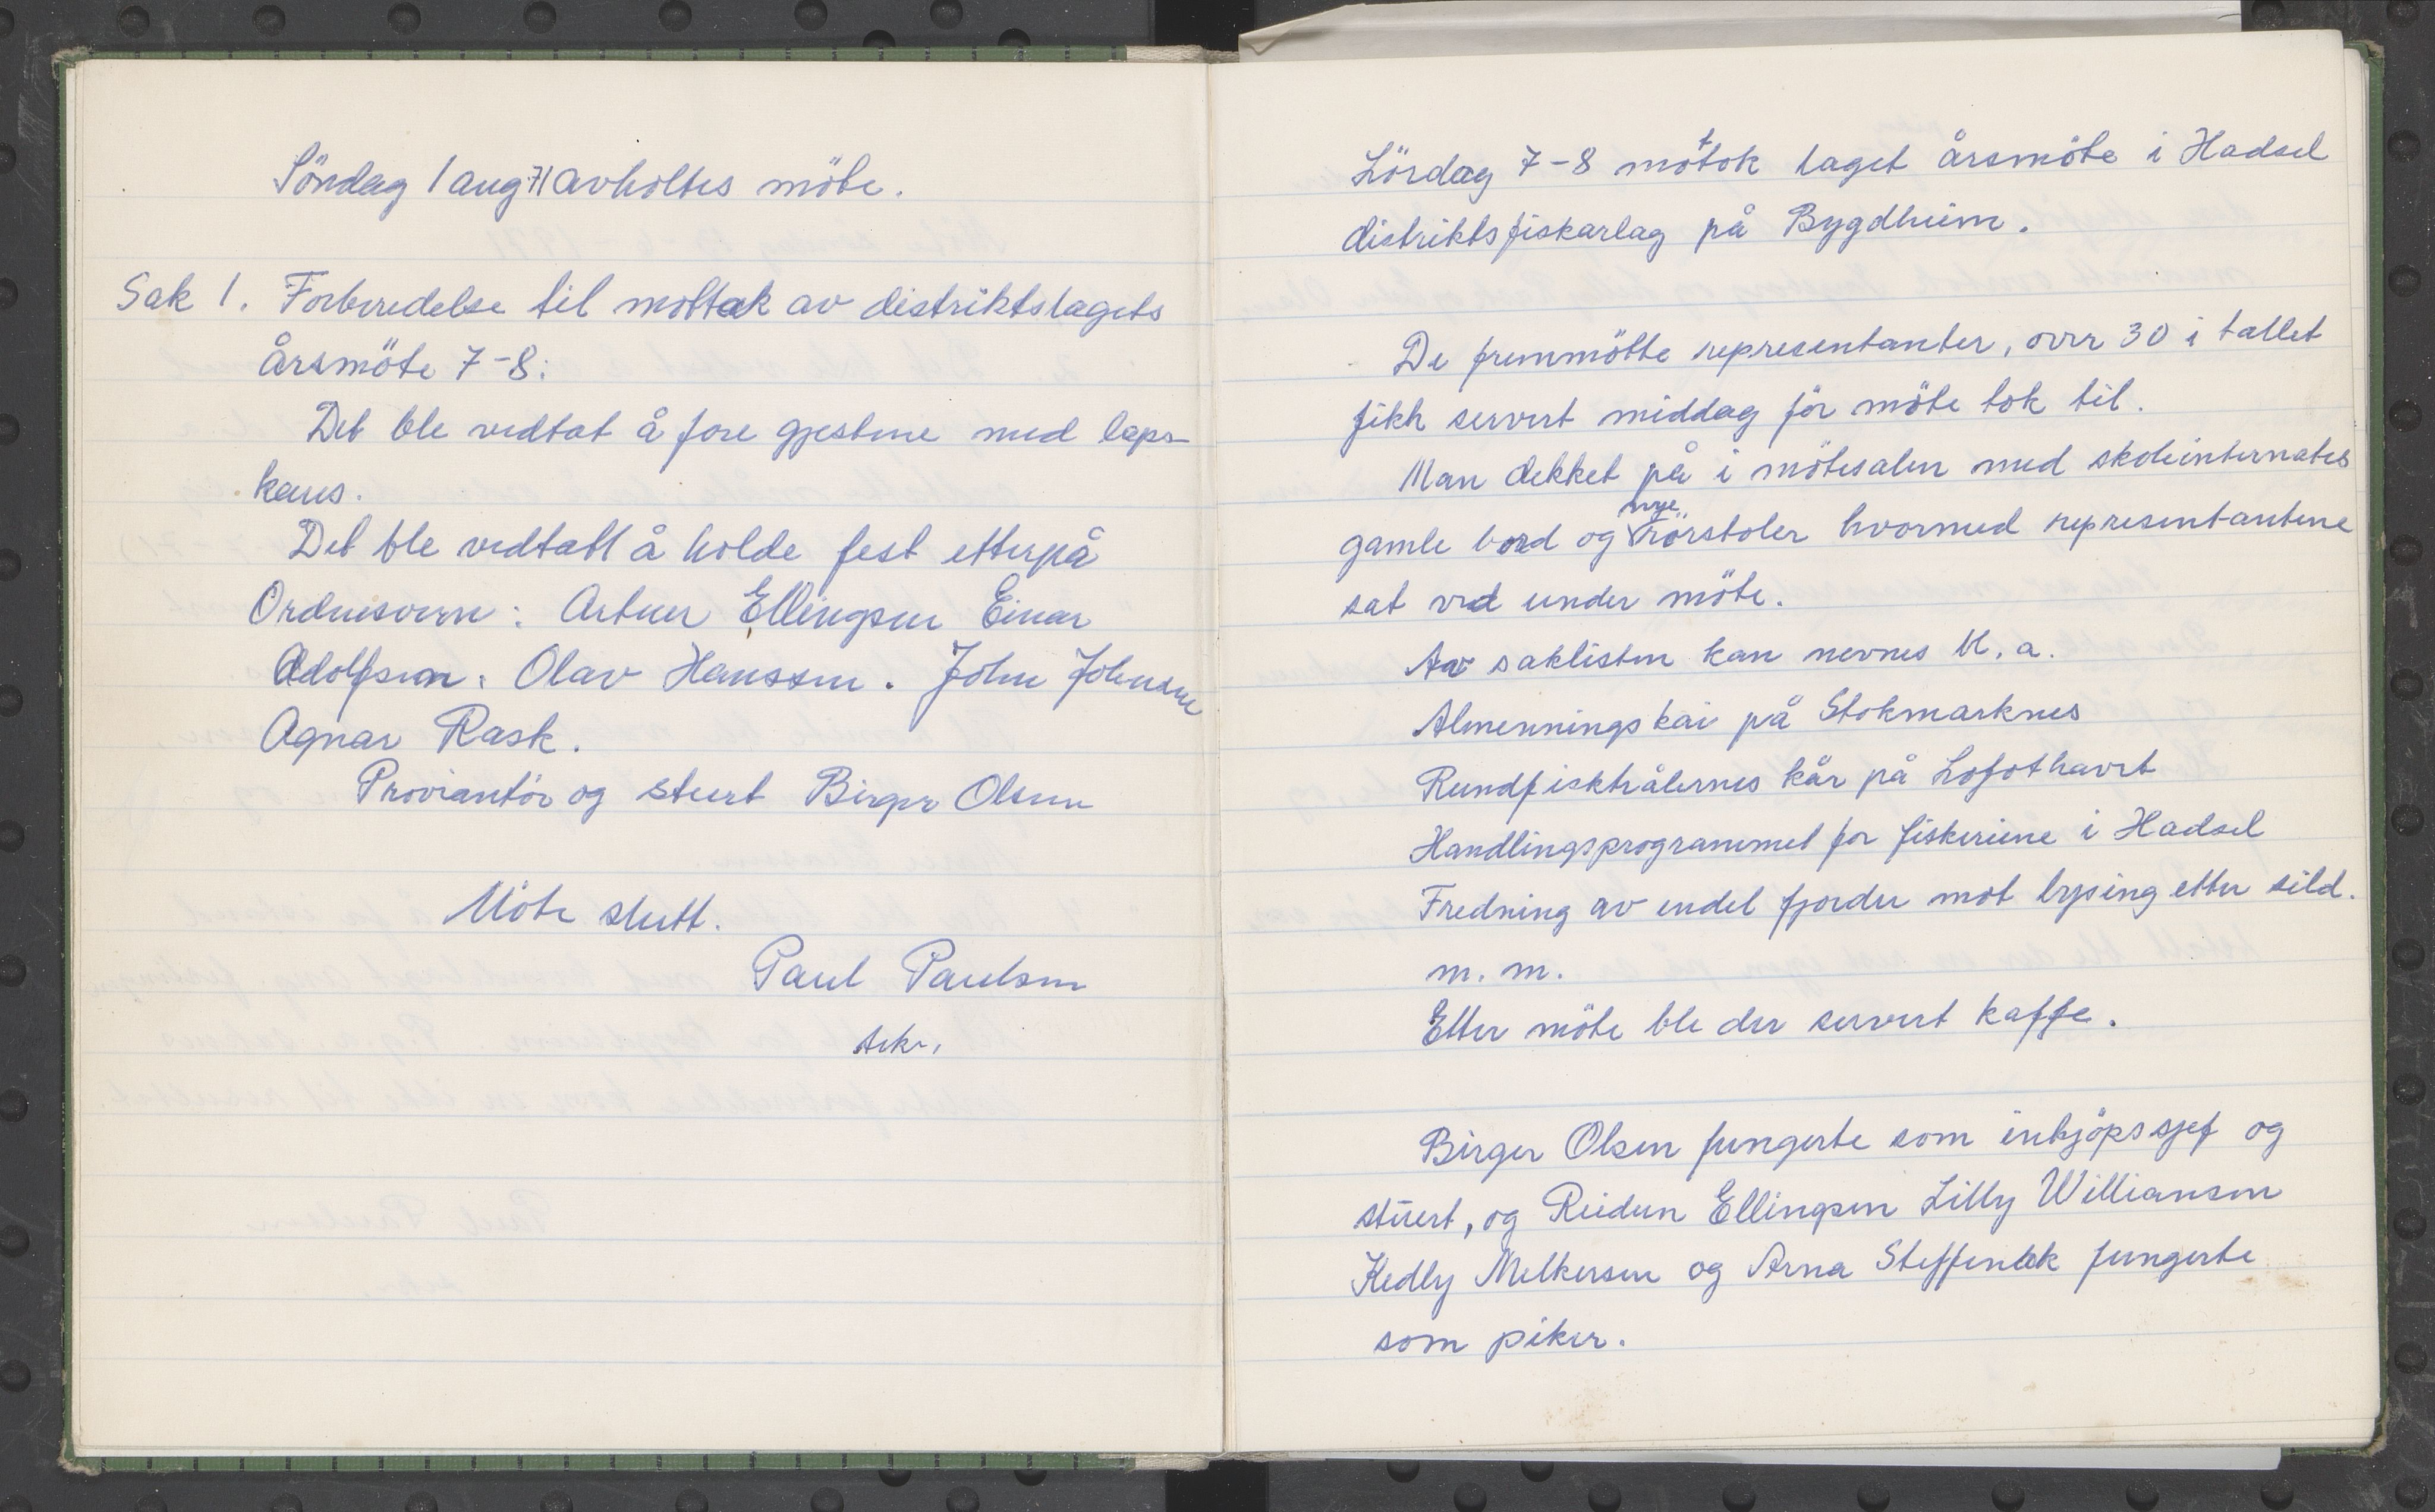 Söndag 1 aug 71 avholtes möte.
Sak 1. Forberedelse til mottak av distriktslagets
årsmöte 7-8:
Det ble vedtat å fore gjestene med laps-
kaus.
Det ble vedtatt å holde fest etterpå
Ordensvern: Artur Ellingsen Einar
Adolfsen. Olav Hanssen. John Johnsen
Agnar Rask.
Proviantör og stuert Birger Olsen
Möte slutt.
Paul Paulsen
sekr.
Lördag 7-8 mottok laget årsmöte i Hadsel
distriktsfiskarlag på Bygdheim.
De fremmötte representanter, over 30 i tallet
fikk servert middag för möte tok til.
Man dekket på i mötesalen med skoleinternates
gamle bord og nye rörstoler hvormed representantene
sat ved under möte.
Av saklisten kan nevnes bl. a.
Almenningskai på Stokmarknes
Rundfisktrålernes kår på Lofothavet
Handlingsprogrammet for fiskeriene i Hadsel
Fredning av endel fjorder mot lysing etter sild.
m. m.
Etter möte ble der servert kaffe.
Birger Olsen fungerte som inkjöpssjef og
stuert, og Reidun Ellingsen Lilly Williansen
Kedly Melkersen og Arna Steffenak fungerte
som piker.